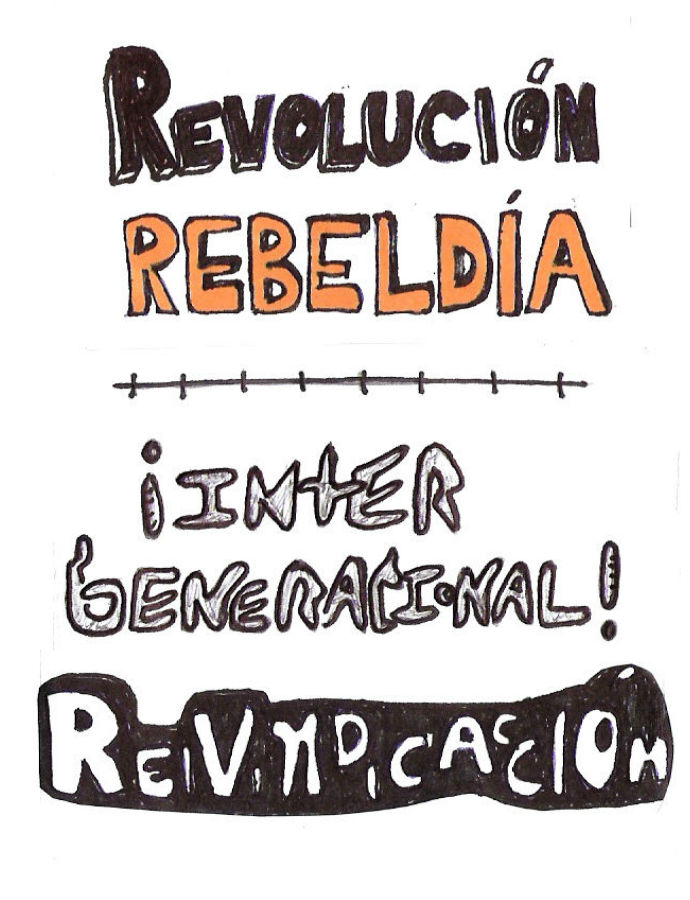 REVOLUCIÓN
REBELDÍA
¡INTER
GENERACIONAL!
REiVINDiCACCIÓN